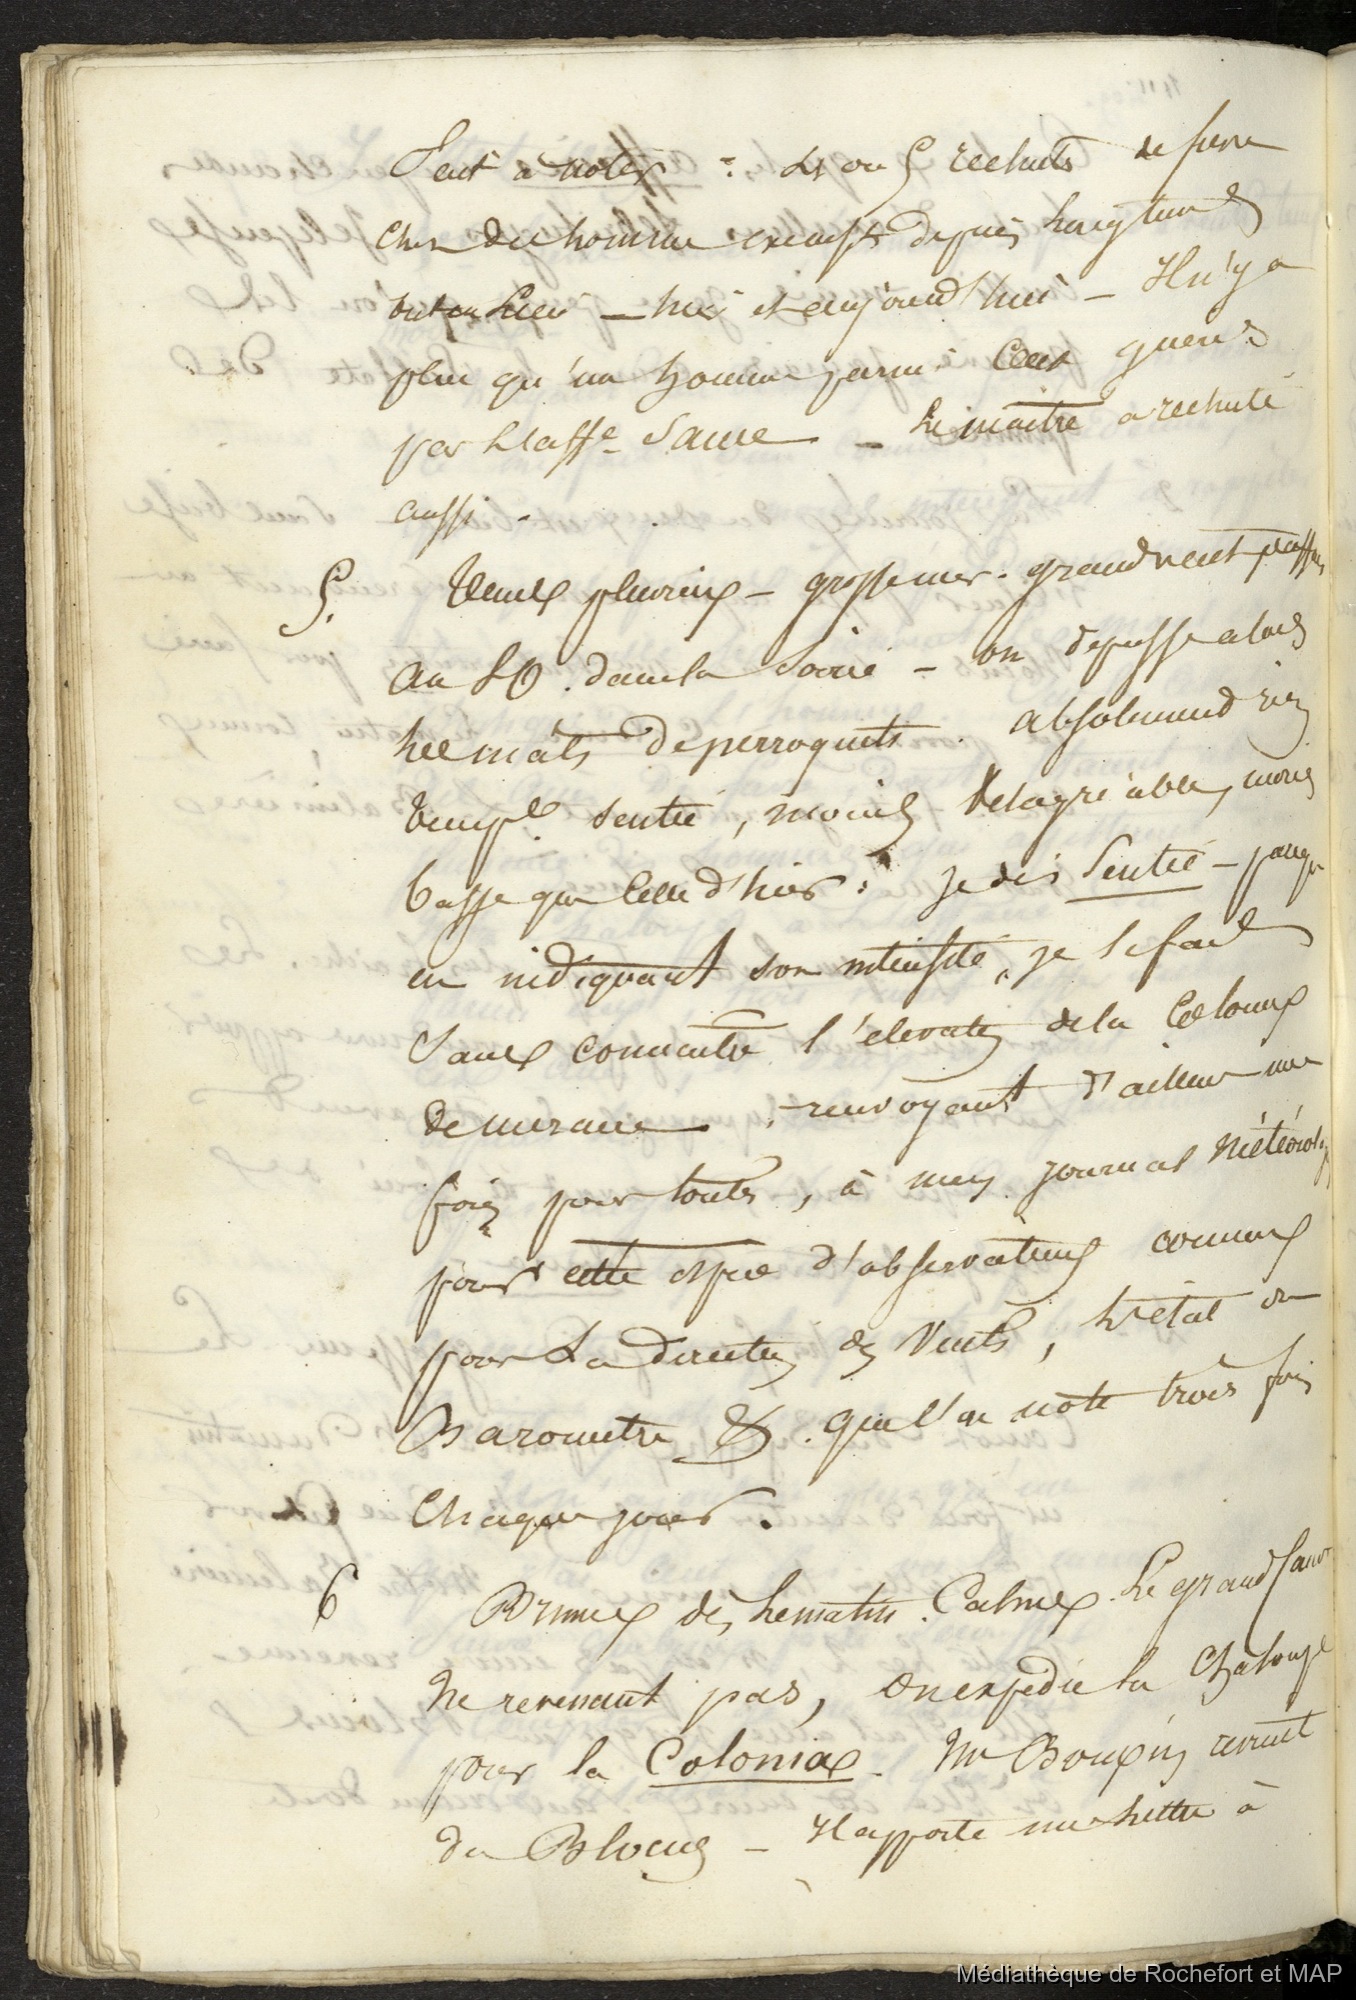 à noter : 4 ou 5 rechutes de fievre
chez des hommes exempts depuis longtems
ont eu lieu - hier et aujourd'hui - Il n'y a
plus qu'un homme parmi ceux gueris
par - Le maitre a rechuté
aussi.
5. Tems pluvieux - grosse mer. grand vent
au SO. dans la soirée - on depasse alors
les mâts de perroquets. absolument rien
temp.e sentie, moins desagréable, moins
basse que celle d'hier : je dis sentie - parceque
en indiquant son intensité, je le fais
sans connaitre l'elevation de la colonne
de mercure ; renvoyant d'ailleurs une
fois pour toutes, à mon journal météorolog.
pour cette espece d'observations comme
pour la direction des vents, l'etat du
Barometre &. que l'on note trois fois
chaque jour.
6 Brumes dès le matin. Calmes. Le grand canot
ne revenant pas, on expédie la chaloupe
pour la Colonia. Mr revient
du Blocus - Il apporte une lettre à
Médiathèque de Rochefort et MAP